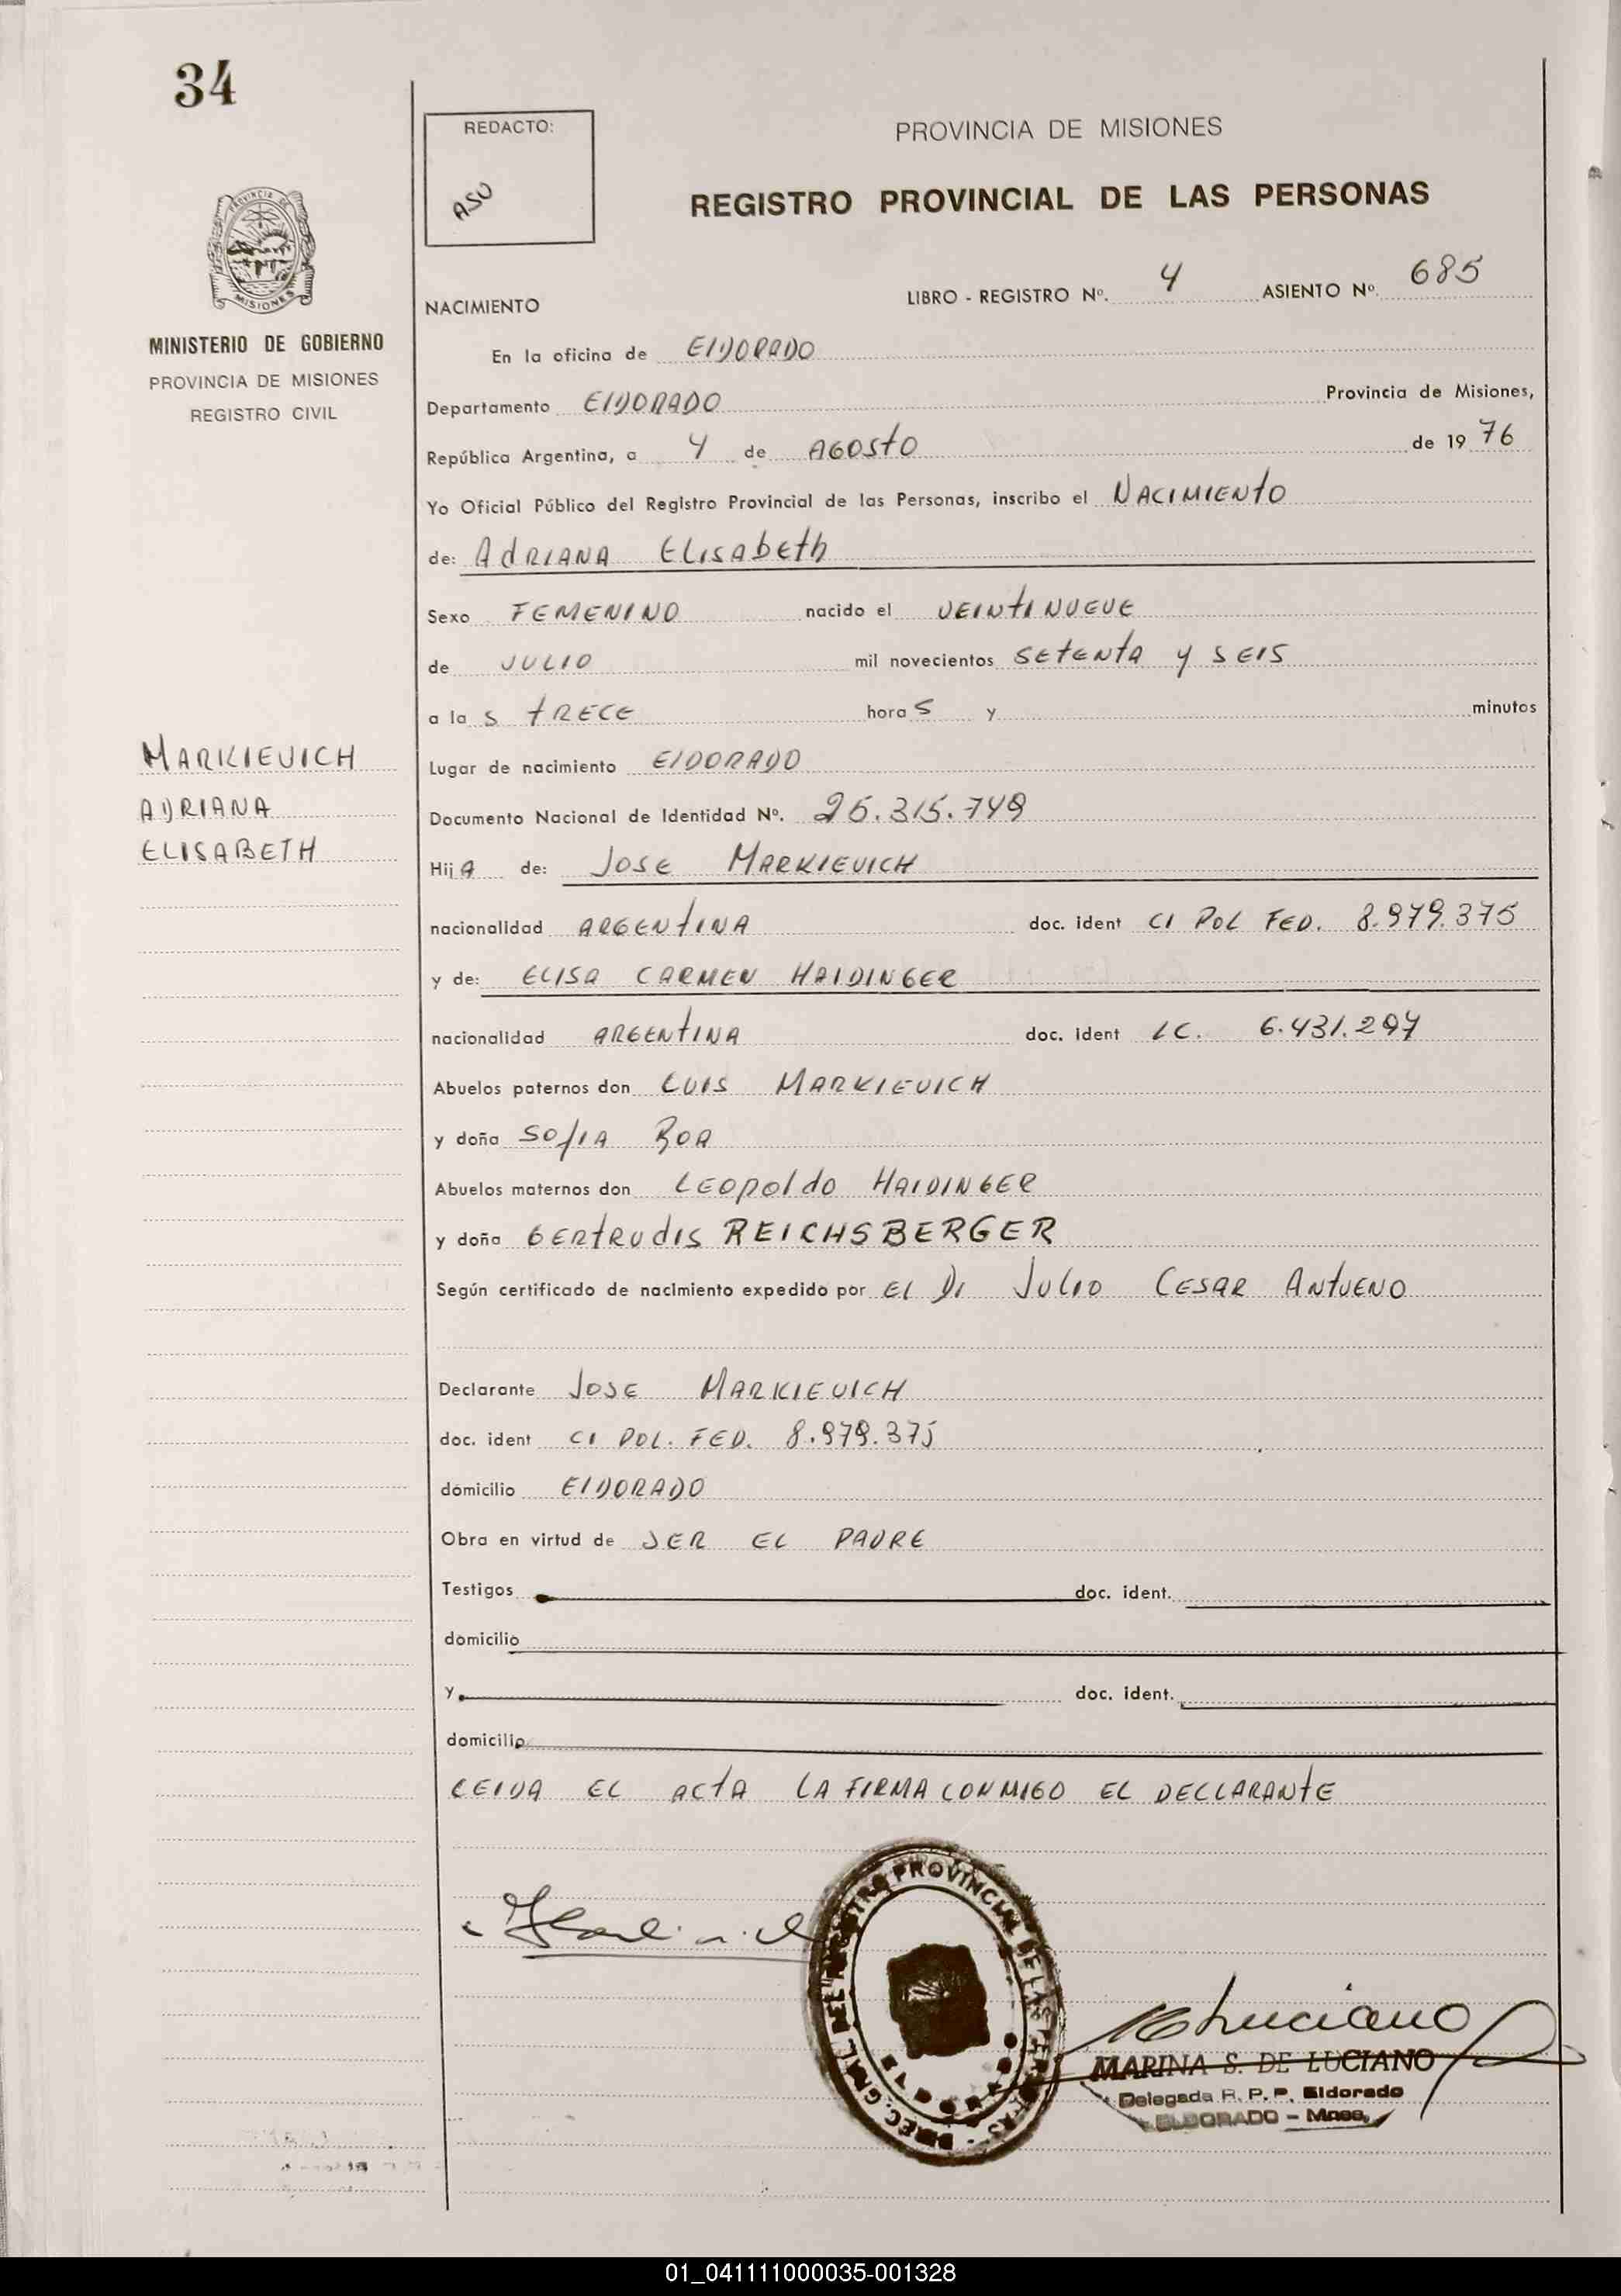 34
REDACTO:
ASU
PROVINCIA DE MISIONES
REGISTRO PROVINCIAL DE LAS PERSONAS
MINISTERIO DE GOBIERNO
PROVINCIA DE MISIONES
REGISTRO CIVIL
NACIMIENTO LIBRO - REGISTRO Nº. 4 ASIENTO Nº. 685
En la oficina de ElDORADO
Departamento ElDORADO Provincia de Misiones,
República Argentina, a 4 de AGOSTO de 19 76
Yo Oficial Público del Registro Provincial de las Personas, inscribo el NACIMIENTO
de: AdRIANA ELISAbeth
Sexo FEMENINO nacido el VEINTINUEVE
de JULIO mil novecientos SETENTA y SEIS
a la s TRECE hora S y minutos
MARKIEVICH
ADRIANA
ELISABETH
Lugar de nacimiento ElDORADO
Documento Nacional de Identidad Nº. 25.315.749
Hij A de: JOSE MARKIEVICH
nacionalidad ARGENTINA doc. ident CI POL FED. 8.979.375
y de: ELISA CARMEN HAIDINGER
nacionalidad ARGENTINA doc. ident LC. 6.431.297
Abuelos paternos don LUIS MARKIEVICH
y doña SOfIA BOA
Abuelos maternos don LEOpoldo HAIDINGER
y doña GERTRUdIS REICHSBERGER
Según certificado de nacimiento expedido por El Dr JULIO CESAR ANTUENO
Declarante JOSE MARKIEVICH
doc. ident CI POL. FED. 8.979.375
domicilio ElDORADO
Obra en virtud de SER EL PADRE
Testigos doc. ident.
domicilio
y doc. ident.
domicilio
LEIDA EL ACTA LA FIRMA CONMIGO EL DECLARANTE
DIREC. GRAL. DEL REGISTRO PROVINCIAL DE LAS PERSONAS
MARINA S. DE LUCIANO
Delegada R. P. P. Eldorado
ELDORADO - Mnes.
01_041111000035-001328